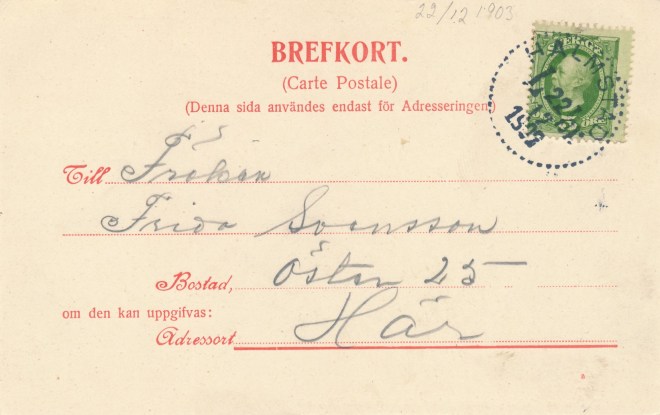 22/12 1903
BREFKORT.
(Carte Postale)
(Denna sida användes endast för Adresseringen)
HALMSTAD
Till Fröken
Frida Svensson
Bostad, Öster 25
om den kan uppgifvas:
Adressort Här